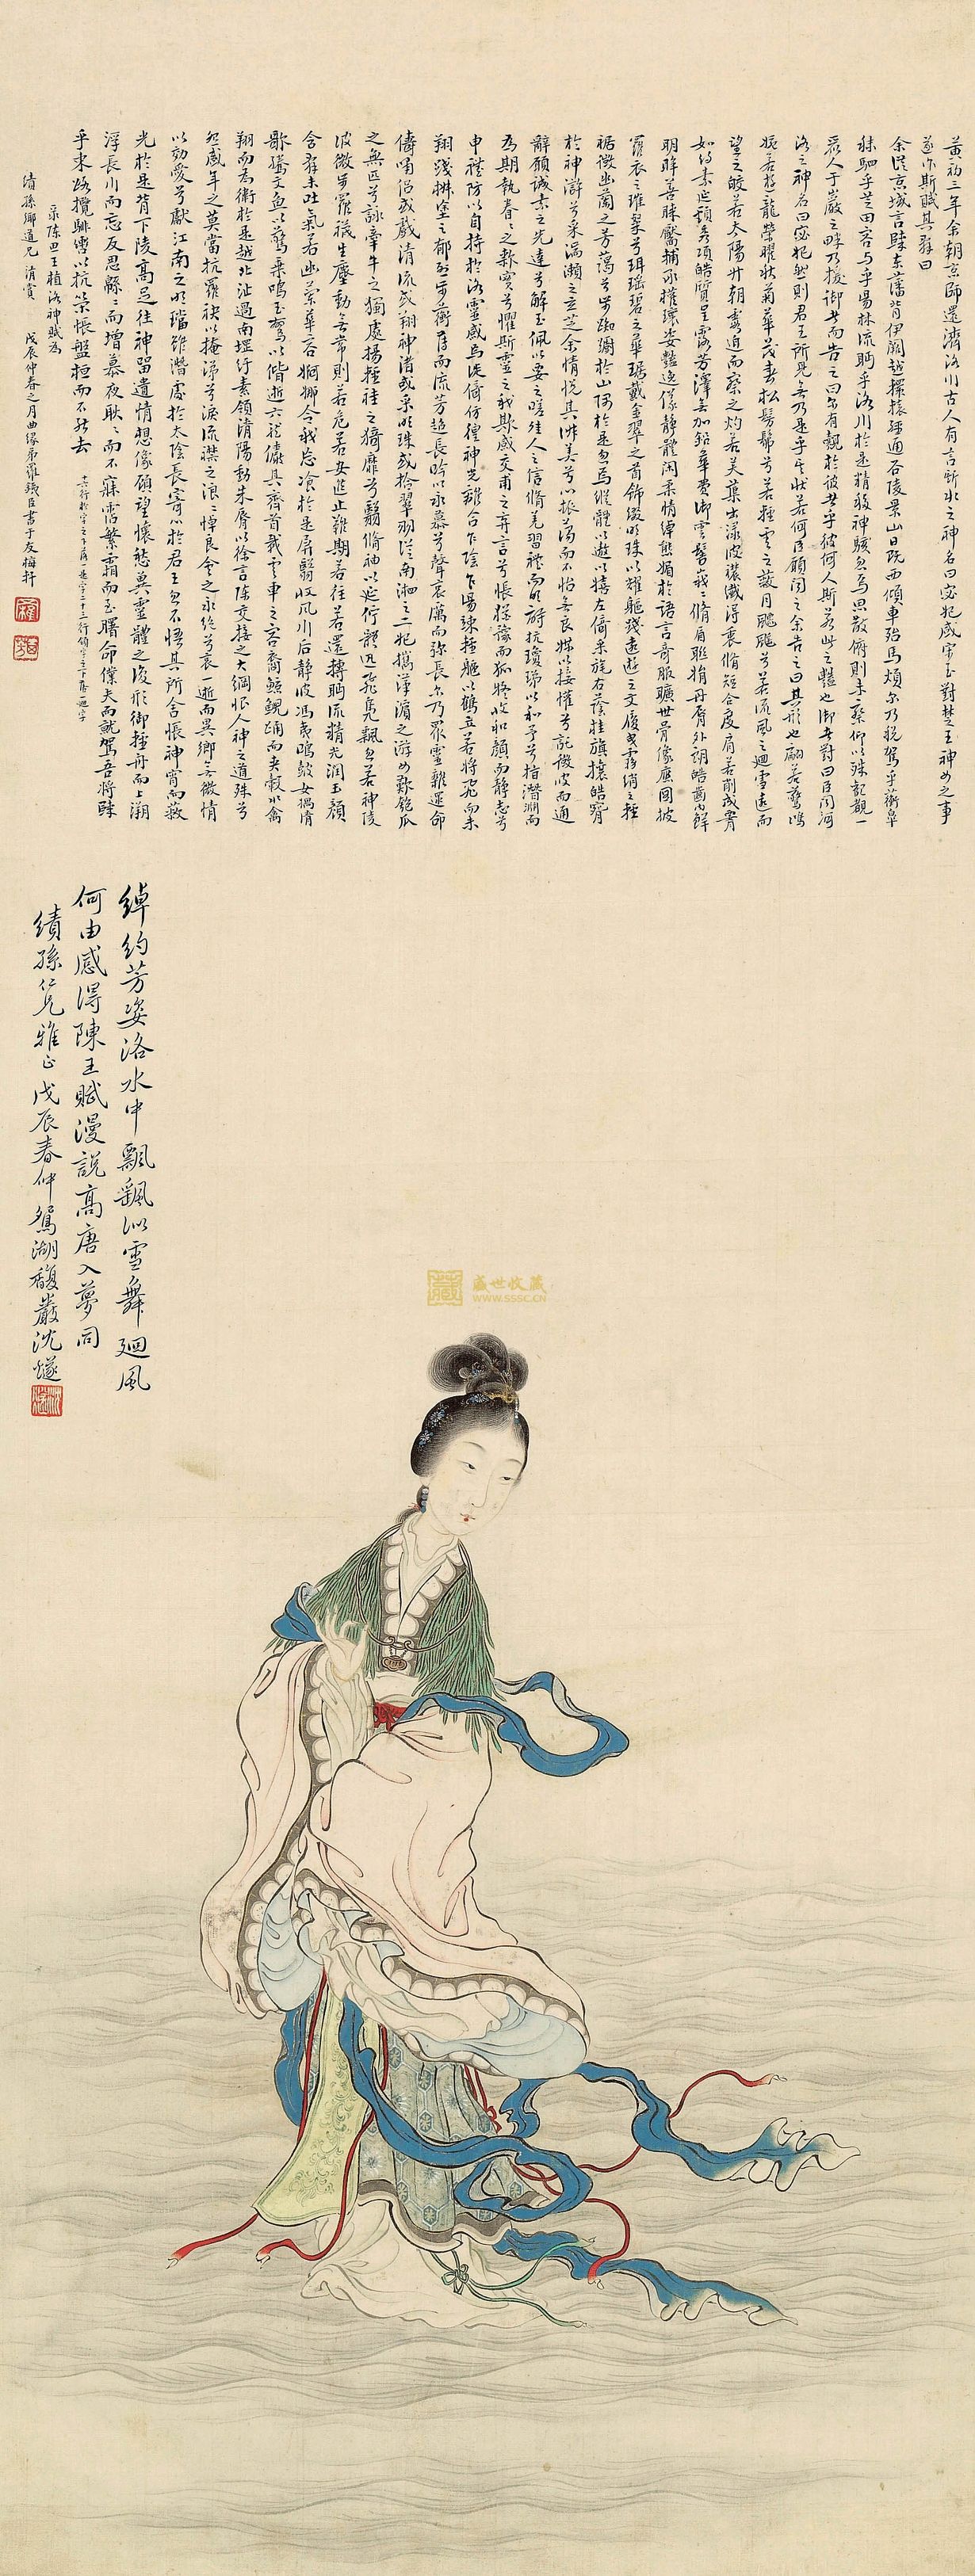 黃初三年余朝京師還濟洛川古人有言斯水之神名曰宓妃感宋玉對楚王神女之事
遂作斯賦其辭曰
余從京域言歸東藩背伊闕越轘轅經通谷陵景山日既西傾車殆馬煩尔乃稅駕乎蘅皋
秣駟乎芝田容与乎陽林流眄乎洛川於是精移神駭忽焉思散俯則未察仰以殊觀覩一
麗人于巖之畔乃援御者而告之曰尔有覿於彼者乎彼何人斯若此之豔也御者對曰臣聞河
洛之神名曰宓妃然則君王所見無乃是乎其狀若何臣願聞之余告之曰其形也翩若驚鴻
婉若游龍榮曜秋菊華茂春松髣髴兮若輕雲之蔽月飄颻兮若流風之迴雪遠而
望之皎若太陽升朝霞迫而察之灼若芙蕖出淥波襛纖得衷脩短合度肩若削成腰
如約素延頸秀項皓質呈露芳澤無加鉛華弗御雲髻峩々脩眉聯娟丹脣外朗皓齒內鮮
明眸善睞靨輔承權瓌姿豔逸儀靜體閑柔情綽態媚於語言奇服曠世骨像應圖披
羅衣之璀粲兮珥瑤碧之華琚戴金翠之首飾綴明珠以耀軀踐遠遊之文履曳霧綃之輕
裾微幽蘭之芳藹兮步踟躕於山隅於是忽焉縱體以遨以嬉左倚采旄右蔭桂旗攘皓腕
於神滸兮采湍瀨之玄芝余情悅其淑美兮心振蕩而不怡無良媒以接懽兮託微波而通
辭願誠素之先達兮解玉佩以要之嗟佳人之信脩羌習禮而明詩抗瓊珶以和予兮指潛淵而
為期執眷々之款實兮懼斯靈之我欺感交甫之棄言兮悵猶豫而狐疑收和顏而靜志兮
申禮防以自持於洛靈感焉徙倚彷徨神光離合乍陰乍陽竦輕軀以鶴立若將飛而未
翔踐椒塗之郁烈步蘅薄而流芳超長吟以永慕兮聲哀厲而彌長尔乃眾靈雜遝命
儔嘯侶或戲清流或翔神渚或采明珠或拾翠羽從南湘之二妃攜漢濱之游女歎匏瓜
之無匹兮詠牽牛之獨處揚輕袿之猗靡兮翳脩袖以延佇體迅飛鳧飄忽若神陵
波微步羅襪生塵動無常則若危若安進止難期若往若還轉眄流精光潤玉顏
含辭未吐氣若幽蘭華容婀娜令我忘飡於是屏翳收風川后靜波馮夷鳴鼓女媧清
歌騰文魚以警乘鳴玉鸞以偕逝六龍儼其齊首載雲車之容裔鯨鯢踊而夾轂水禽
翔而為衛於是越北沚過南堽紆素領清陽動朱脣以徐言陳交接之大綱恨人神之道殊兮
怨盛年之莫當抗羅袂以掩涕兮淚流襟之浪々悼良會之永絕兮哀一逝而異鄉無微情
以効愛兮獻江南之明璫雖潛處於太陰長寄心於君王忽不悟其所舍悵神宵而蔽
光於是背下陵高足往神留遺情想像顧望懷愁冀靈體之復形御輕舟而上溯
浮長川而忘反思緜々而增慕夜耿々而不寐霑繁霜而至曙命僕夫而就駕吾將歸
乎東路攬騑轡以抗策悵盤桓而不能去
录陳思王植洛神賦為
績孫鄉道兄清賞 戊辰仲春之月曲緣弟羅
綽約芳姿洛水中飄飄似雪舞迴風
何由感得陳王賦漫說高唐入夢同
績孫仁兄雅正戊辰春仲鴛湖馥巖沈燧
盛世收藏
WWW.SSSC.CN